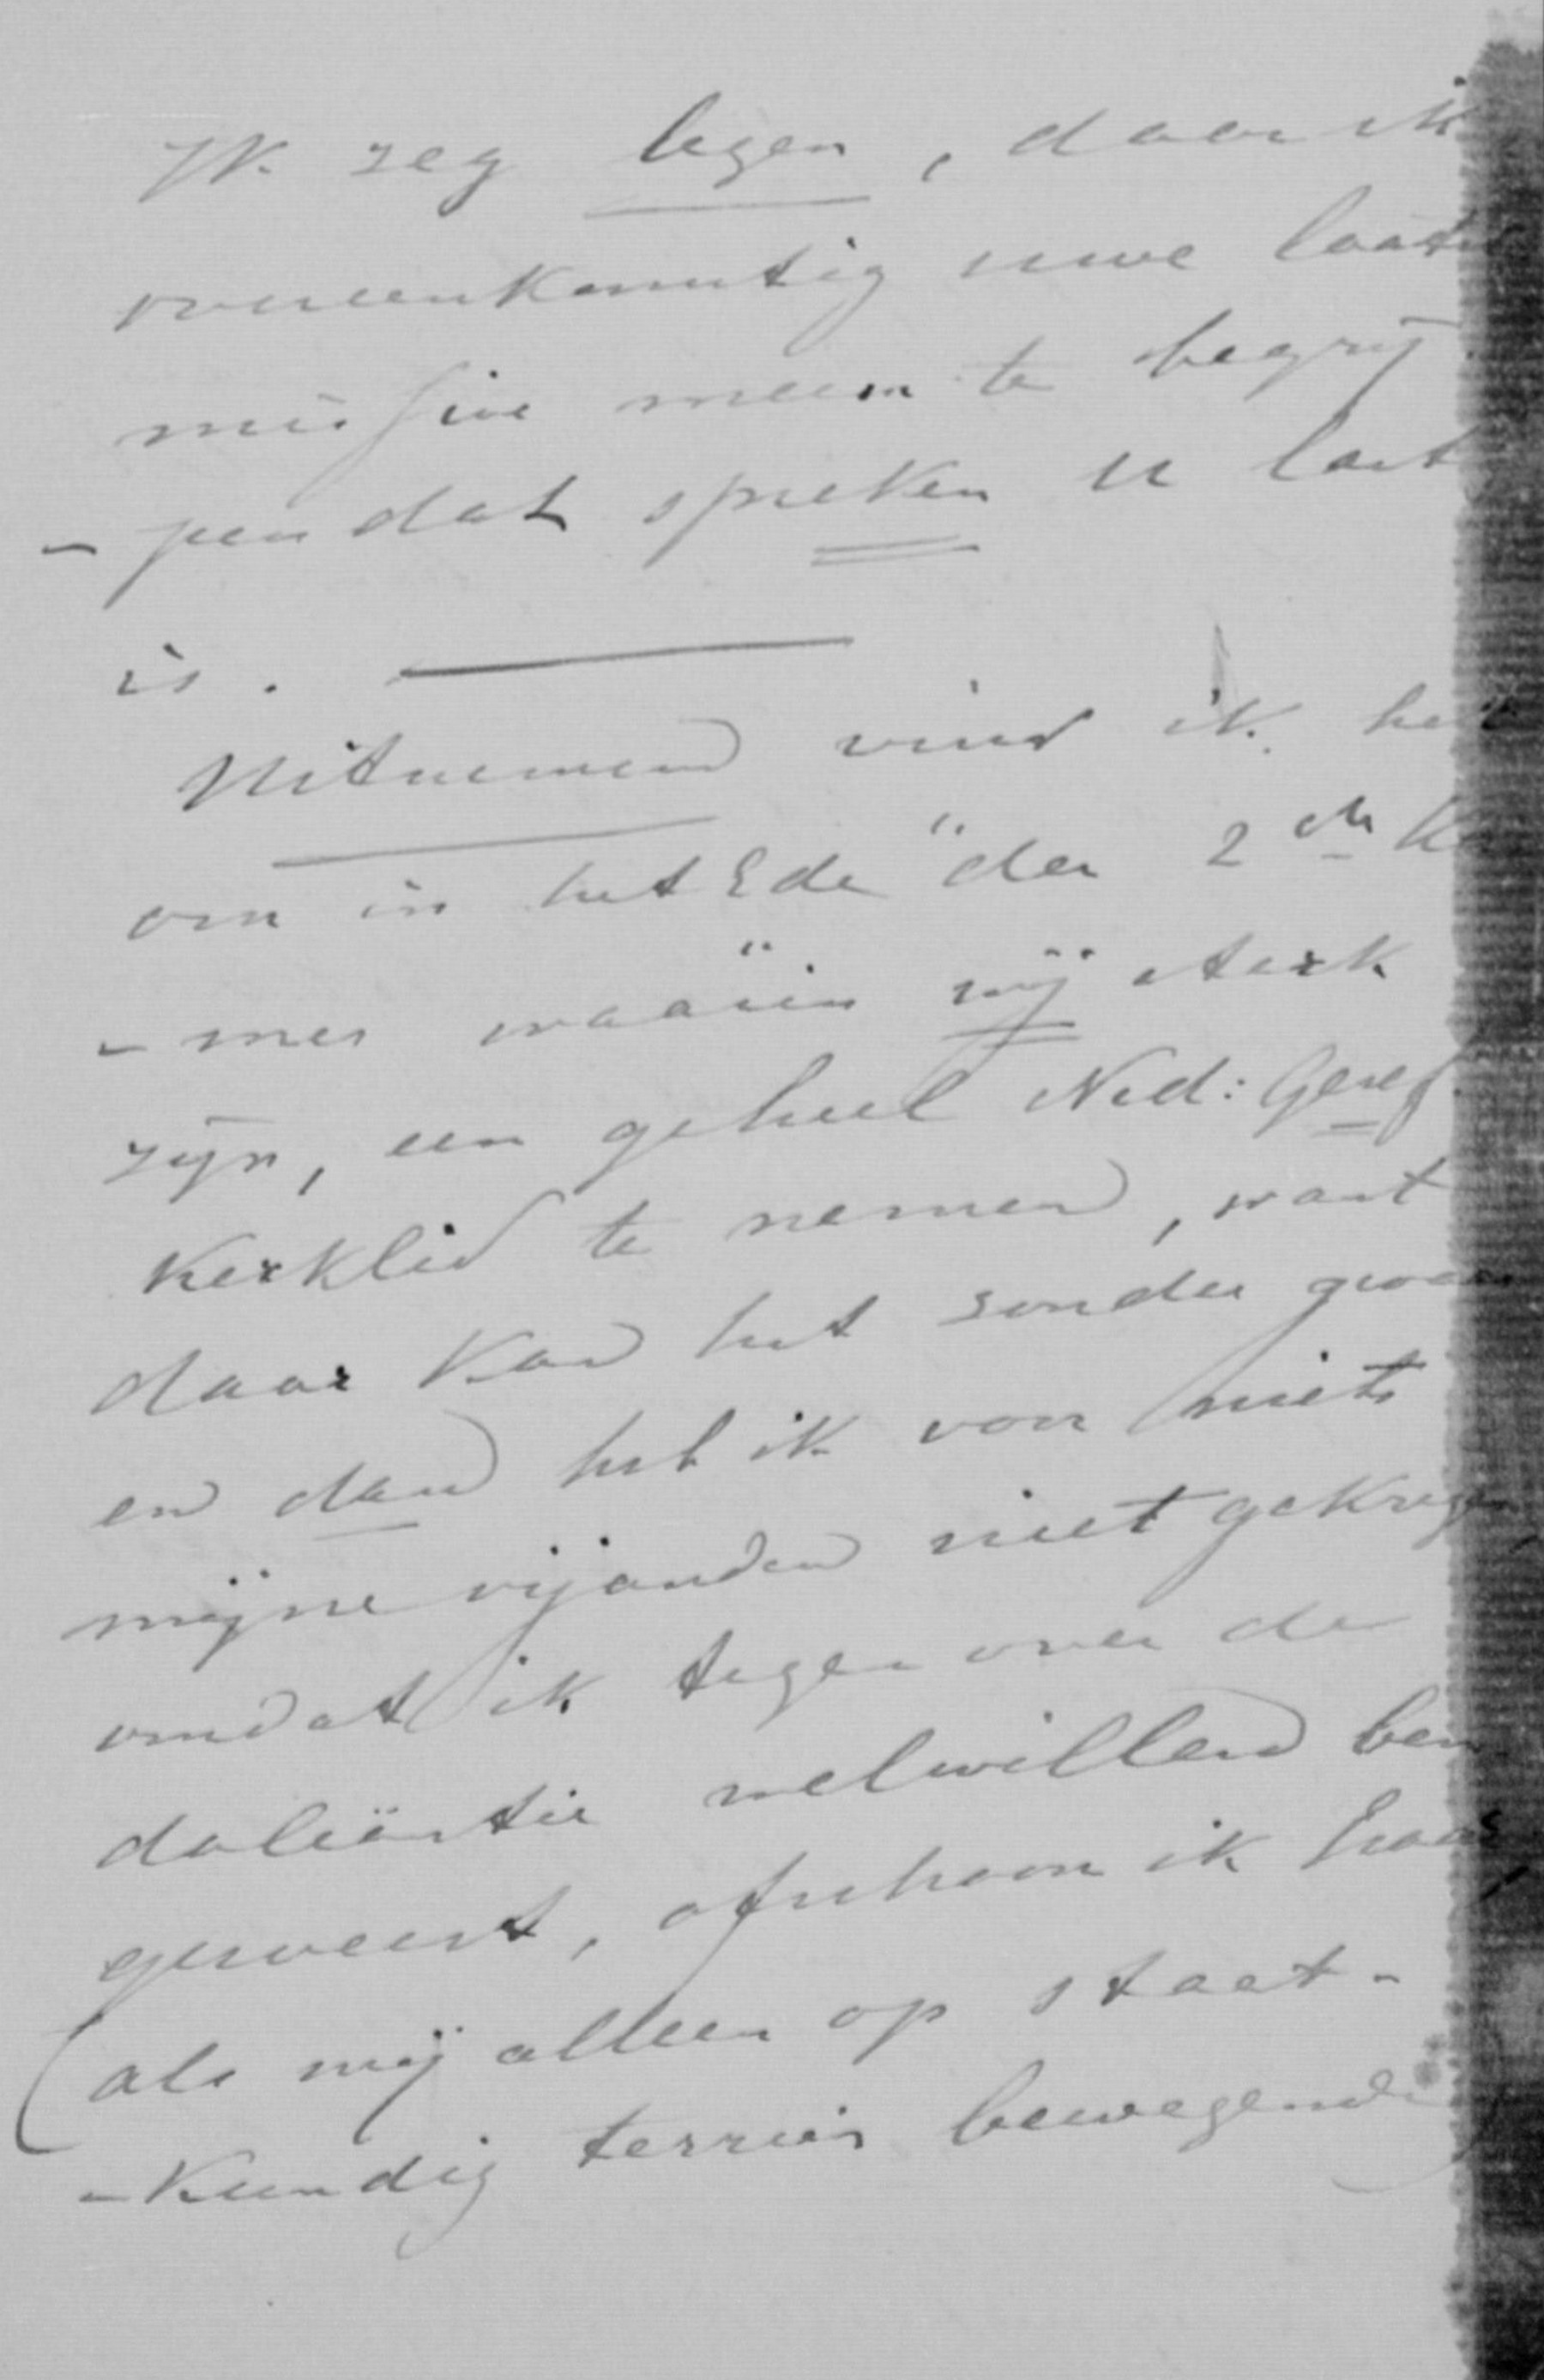 Ik zeg lezen, daar ik
overeenkomstig uwe laatste
missive meen te begrij
- pen dat spreken u last
is.
Uitnemend vind ik het
om in het Ede der 2de Ka
- mer waarin wij sterk
zijn, een geheel Ned: Geref.
Kerklid te nemen, want
daar kan het zonder gevaar
en dan heb ik van niets
mijne vijanden niet gekregen
omdat ik tegen over de
doleantie welwillend ben
geweest, ofschoon ik haar
als mij alleen op staat-
- kundig terrein bewegende